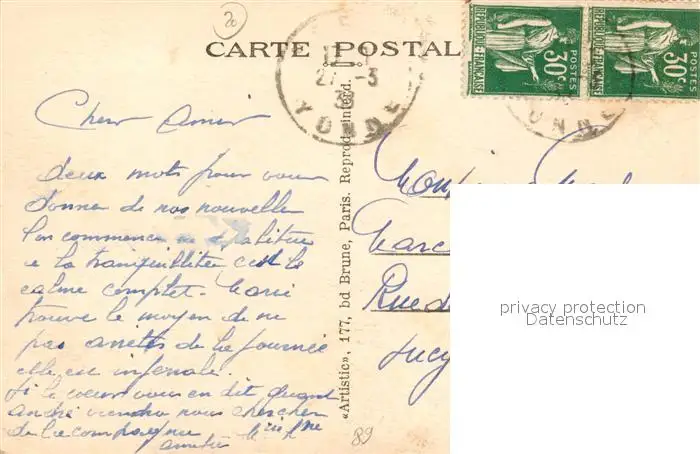 20
CARTE POSTAL
27 -3
YONNE
RÉPUBLIQUE FRANÇAISE
POSTES
30c
RÉPUBLIQUE FRANÇAISE
POSTES
30c
YONNE
Chers Amis
deux mots pour vous
donner de nos nouvelles
l'on commence a s'abituer
a la tranquillité c'est le
calme complet - Marie
trouve le moyen de ne
pas arrêter de la journée
elle est infernale.
Si le coeur vous en dit quand
andré viendra nous chercher
de la compagnie
amitié
«Artistic», 177, bd Brune, Paris. Reprod. interd.
Marc
Rue d
Lucy
89
privacy protection
Datenschutz